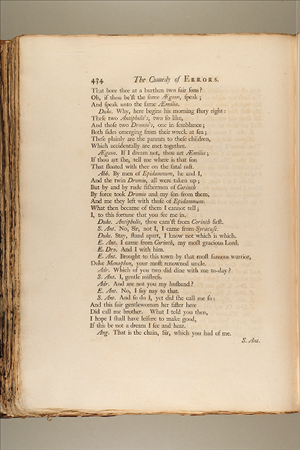 434 The Comedy of ERRORS.
That bore thee at a burthen two fair sons?
Oh, if thou be'st the same Ægeon, speak;
And speak unto the same Æmilia.
Duke. Why, here begins his morning story right:
These two Antipholis's, two so like,
And those two Dromio's, one in semblance;
Both sides emerging from their wreck at sea;
These plainly are the parents to these children,
Which accidentally are met together.
Ægeon. If I dream not, thou art Æmilia;
If thou art she, tell me where is that son
That floated with thee on the fatal raft.
Abb. By men of Epidamnum, he and I,
And the twin Dromio, all were taken up;
But by and by rude fishermen of Corinth
By force took Dromio and my son from them,
And me they left with those of Epidamnum.
What then became of them I cannot tell;
I, to this fortune that you see me in.
Duke. Antipholis, thou cam'st from Corinth first.
S. Ant. No, Sir, not I, I came from Syracuse.
Duke. Stay, stand apart, I know not which is which.
E. Ant. I came from Corinth, my most gracious Lord.
E. Dro. And I with him.
E. Ant. Brought to this town by that most famous warrior,
Duke Menaphon, your most renowned uncle.
Adr. Which of you two did dine with me to-day?
S. Ant. I, gentle mistress.
Adr. And are not you my husband?
E. Ant. No, I say nay to that.
S. Ant. And so do I, yet did she call me so:
And this fair gentlewoman her sister here
Did call me brother. What I told you then,
I hope I shall have leisure to make good,
If this be not a dream I see and hear.
Ang. That is the chain, Sir, which you had of me.
S. Ant.